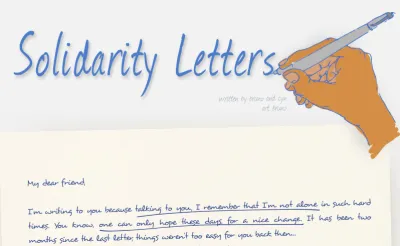 Solidarity Letters
My dear friend
I'm writing to you because talking to you, I remember that I'm not alone in such hard
times. You know, one can only hope these days for a nice change. It has been two
months since the last letter, things weren't too easy for you back then...